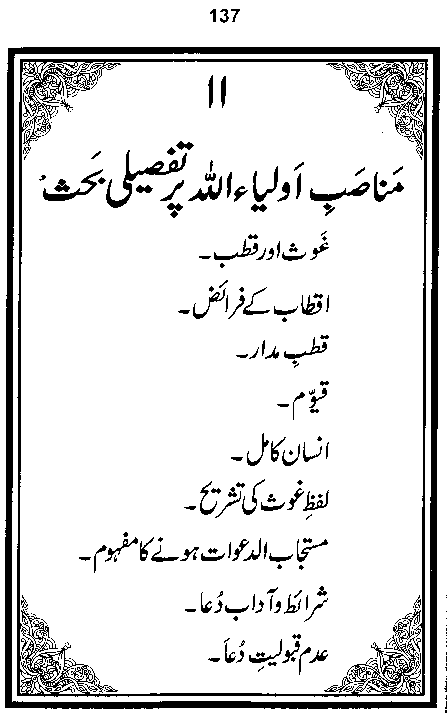 137
۱۱
مَناصَبِ اَولیاء اللہ پر تفصیلی بَحَث
غَوث اور قطب۔
اقطاب کے فرائض۔
قطبِ مدار۔
قیّوم۔
انسان کامل۔
لفظِ غوث کی تشریح۔
مستجاب الدعوات ہونے کا مفہوم۔
شرائط و آداب دُعا۔
عدم قبولیتِ دُعا۔